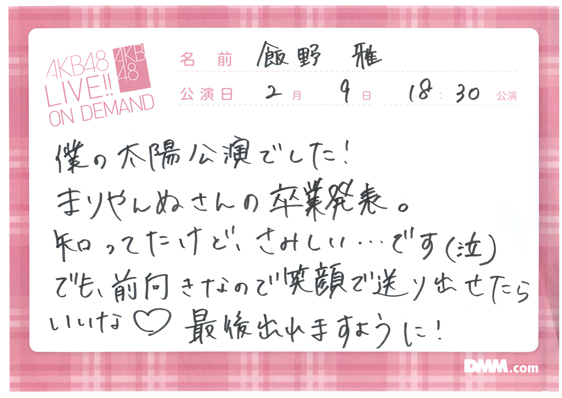 AKB48
LIVE!!
ON DEMAND
AKB
48
名前 飯野 雅
公演日 2月 9日 18:30 公演
僕の太陽公演でした!
まりやんぬさんの卒業発表。
知ってたけど、さみしい…です(泣)
でも、前向きなので笑顔で送り出せたら
いいな♡ 最後出れますように!
DMM.com